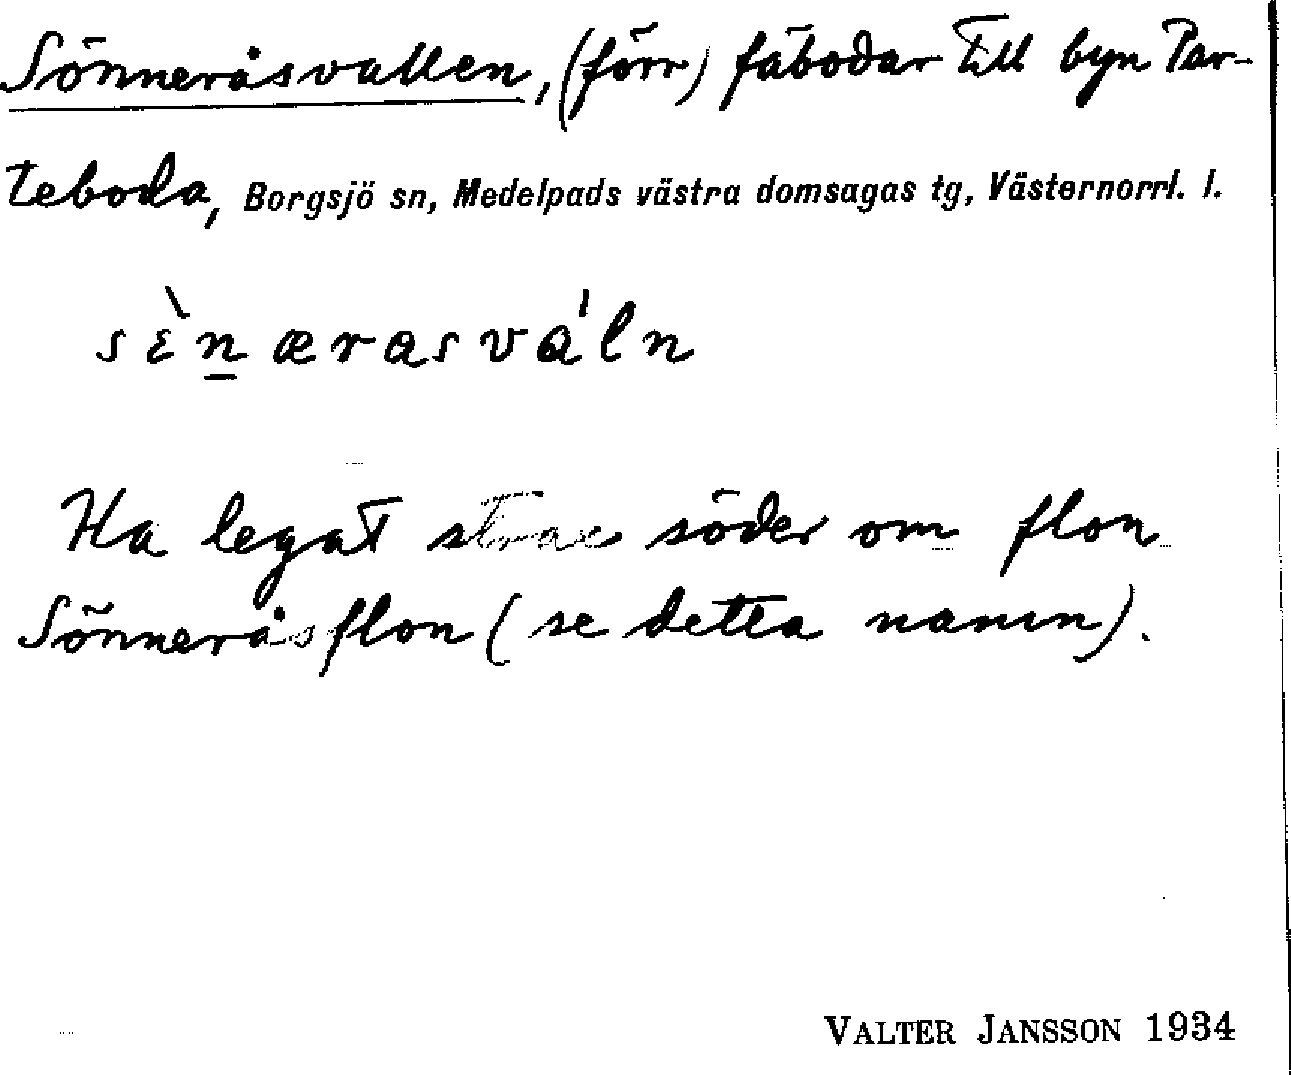 Sönneråsvallen, (förr) fäbodar till byn Par-
teboda, Borgsjö sn, Medelpads västra domsagas tg, Västernorrl. l.
sὲn̲ærasvál̍n
Ha legat strax söder om flon
Sönneråsflon (se detta namn).
VALTER JANSSON 1934